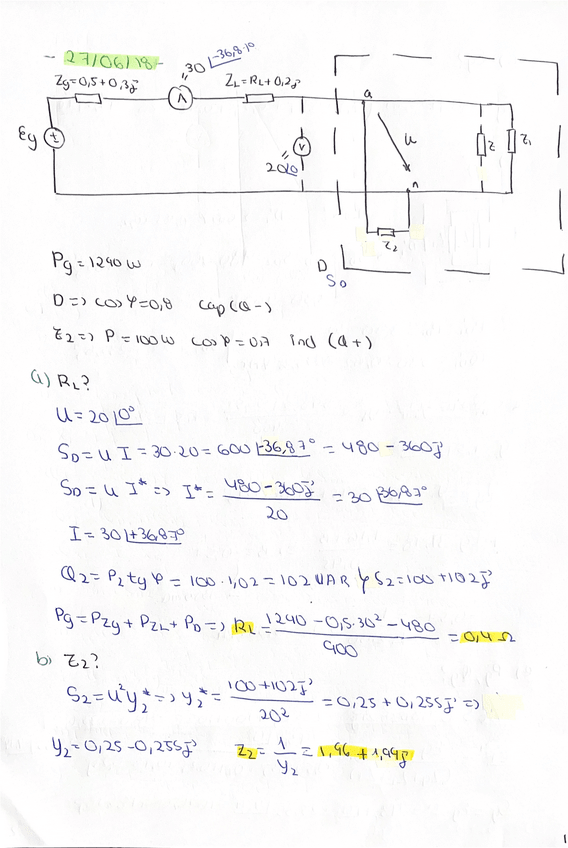 - 27/06/18 -
30 |-36,87°
Zg=0,5+0,3j
A
ZL=RL+0,2j
a
Eg
+
V
20|0
U
n
Z
Z1
Z2
D
SD
Pg = 1240 W
D => cos φ=0,8 cap (Q-)
Z2 => P = 100W cos φ = 0,7 ind (Q+)
a) RL?
U = 20 |0°
SD = U I = 30·20 = 600 |-36,87° = 480 - 360j
SD = U I* => I* = 480-360j / 20 = 30 |-36,87°
I = 30 |+36,87°
Q2 = P2 tg φ = 100 · 1,02 = 102 VAR y S2 = 100 + 102j
Pg = PZg + PZL + PD => RL = 1240 - 0,5·30² - 480 / 900 = 0,4 Ω
b) Z2?
S2 = U² Y2* => Y2* = 100+102j / 20² = 0,25 + 0,255j =>
Y2 = 0,25 - 0,255j Z2 = 1 / Y2 = 1,96 + 1,99j
1